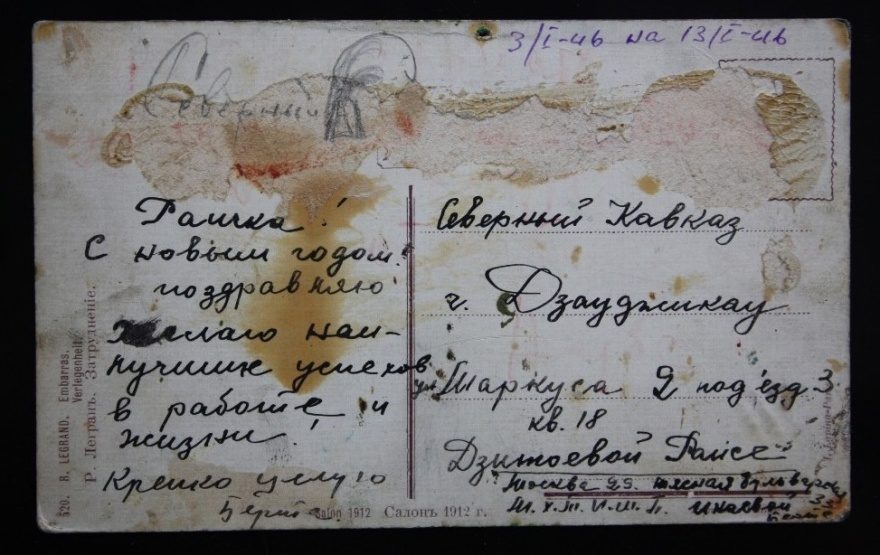 3/I-46 на 13/I-46
Северный
Раичка!
С новым годом!
поздравляю
Желаю наи-
лучших успехов
в работе и
жизни!
Крепко целую
Берта
Северный Кавказ
г. Дзауджикау
ул. Маркуса 2 под'езд 3
кв. 18
Дзитоевой Раисе
Москва 29.
М. Х. Т. И. М. П.
620. R. LEGRAND. Embarras.
Verlegenheit.
Р. Легранъ. Затрудненіе.
Salon 1912 Салонъ 1912 г.